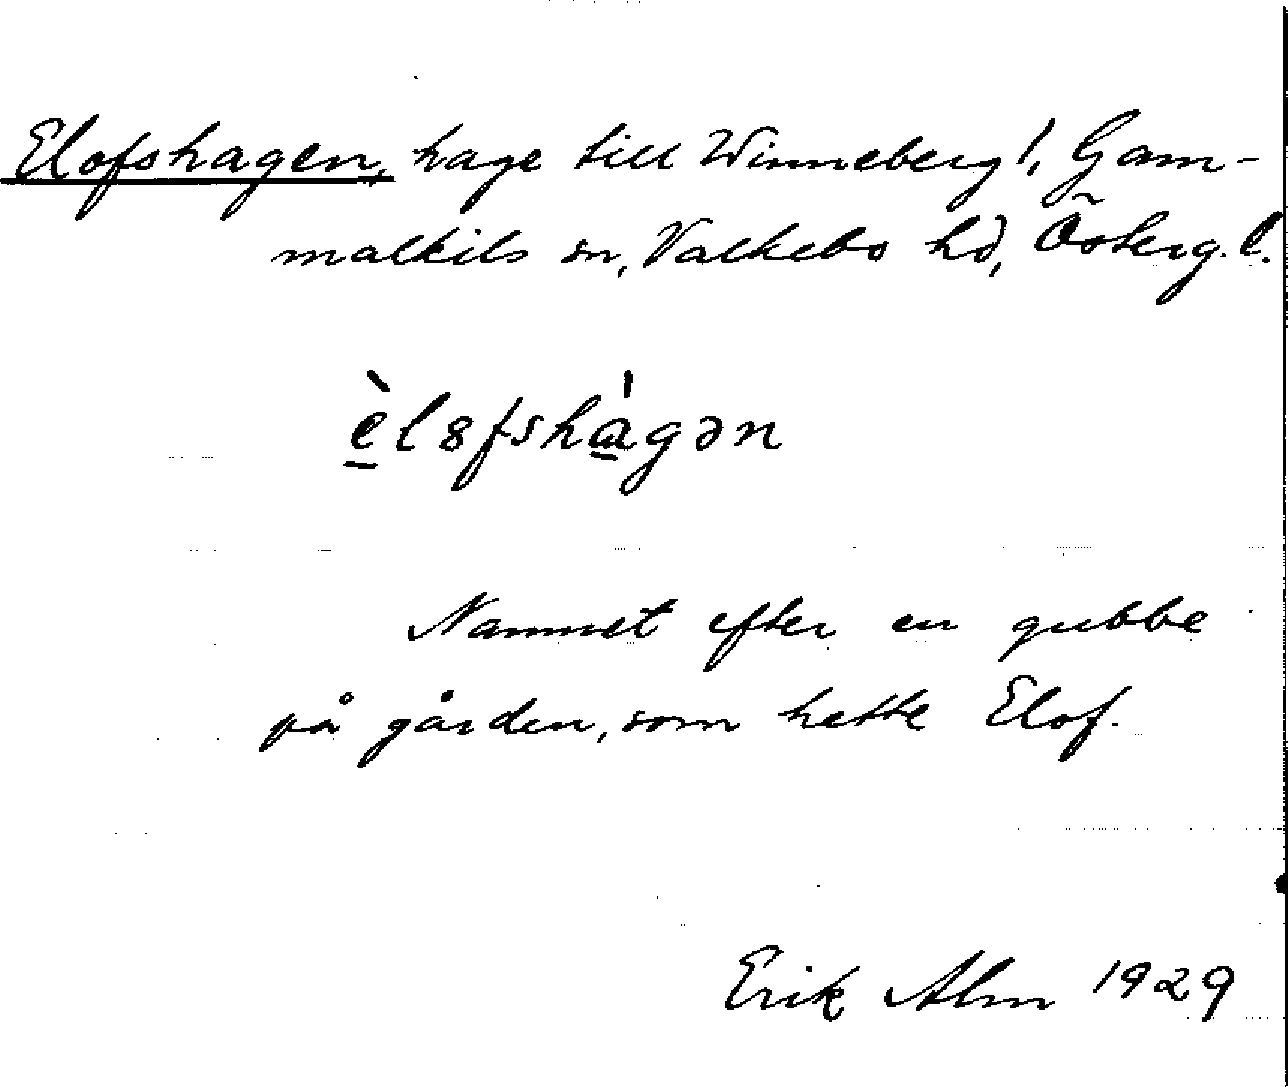 Elofshagen, hage till Winneberg!, Gam-
malkils sn, Valkebo hd, Österg. l.
èlofshàgən
Namnet efter en gubbe
på gården, som hette Elof.
Erik Alm 1929